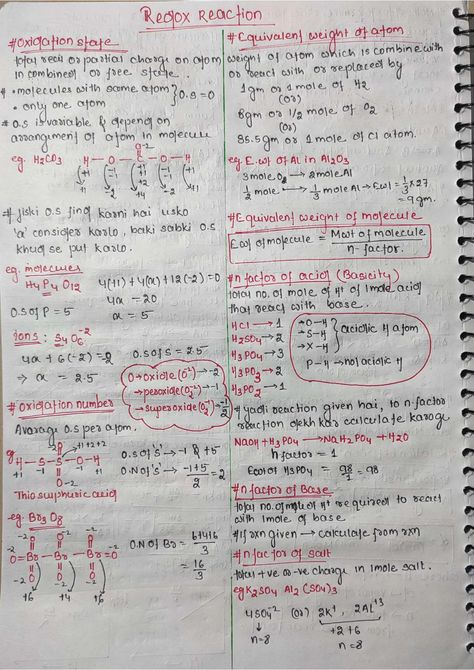 Redox reaction
#Oxidation state
total real or partial charge on atom
in combined or free state.
• molecules with same atom } O.S=0
• only one atom
• O.S is variable & depend on
arrangement of atom in molecule
eg. H2CO3
O-2
H—O—C—O—H
+1 -2 +4 -2 +1
# Jiski O.S find karni hai usko
'a' consider karlo, baki sabki O.S
khud se put karlo.
eg. molecules
H4P4O12
4(+1)+4(a)+12(-2)=0
4a=20
O.S of P = 5
a = 5
Ions: S4O6-2
4a+6(-2)=-2
O.S of S = 2.5
⇒ a = 2.5
O→oxide(O-2)→-2
→peroxide(O2-2)→-1
→superoxide(O2-1)→-1/2
# Oxidation number
Avarage O.S per atom.
eg
H—S—S—O—H
O.S of 'S'→ -1 & +5
O.N of 'S'→ -1+5/2 = 2
Thio sulphuric acid
eg. Br3O8
O=Br—Br—Br=O
+6 +4 +6
O.N of Br = 6+4+6/3
= 16/3
#Equivalent weight of atom
weight of atom which is combine with
or react with or replaced by
1gm or 1 mole of H2
(or)
8gm or 1/2 mole of O2
(or)
35.5gm or 1 mole of Cl atom.
eg. E.wt of Al in Al2O3
3mole O2→2mole Al
1/2 mole→1/3 mole Al→E.wt=1/3×27
=9gm.
#Equivalent weight of molecule
E.wt of molecule = M.wt of molecule/n-factor.
#n factor of acid (Basicity)
total no. of mole of H+ of 1mole acid
that react with base.
HCl→1
H2SO4→2
H3PO4→3
H3PO3→2
H3PO2→1
O—H
S—H } acidic H atom
X—H
P—H→not acidic H
# yadi reaction given hai, to n-factor
reaction dekh kar calculate karoge
NaOH+H3PO4→NaH2PO4+H2O
n factor = 1
E.wt of H3PO4 = 98/1 = 98
#n factor of Base
total no. of mole of H+ required to react
with 1mole of base
#If rxn given→calculate from rxn
#n factor of salt
total +ve or -ve charge in 1mole salt.
eg K2SO4 Al2(SO4)3
4SO4-2 (or) 2K+, 2Al+3
↓
n=8
+2+6
n=8